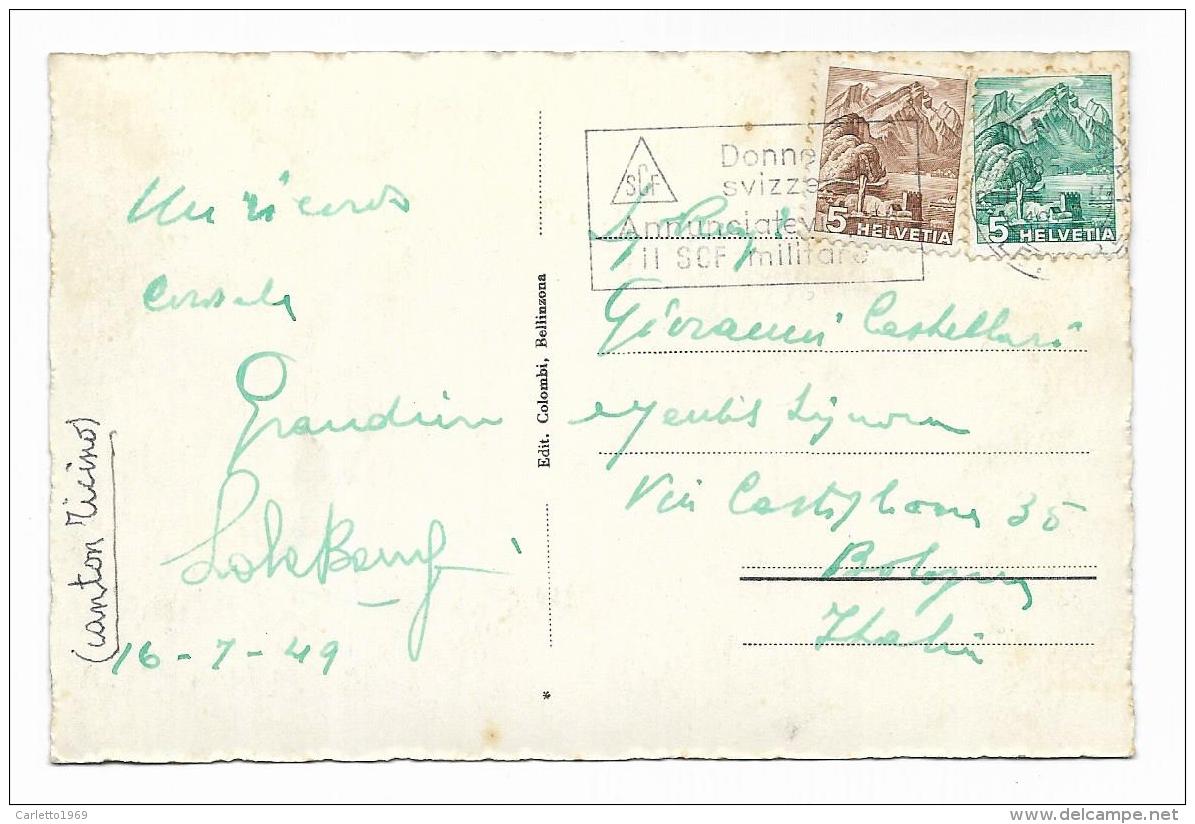 Un ricordo
Cordiale
Grandine
16 - 7 - 49
(Canton Ticino)
Edit. Colombi, Bellinzona
*
SCF
Donne
svizze
Annunciatev
il SCF militare
5 HELVETIA
5 HELVETIA
Giovanni Castellari
e Gentil Signora
Via Castiglione 35
Bologna
Italia
Carletto1969
delcampe.net